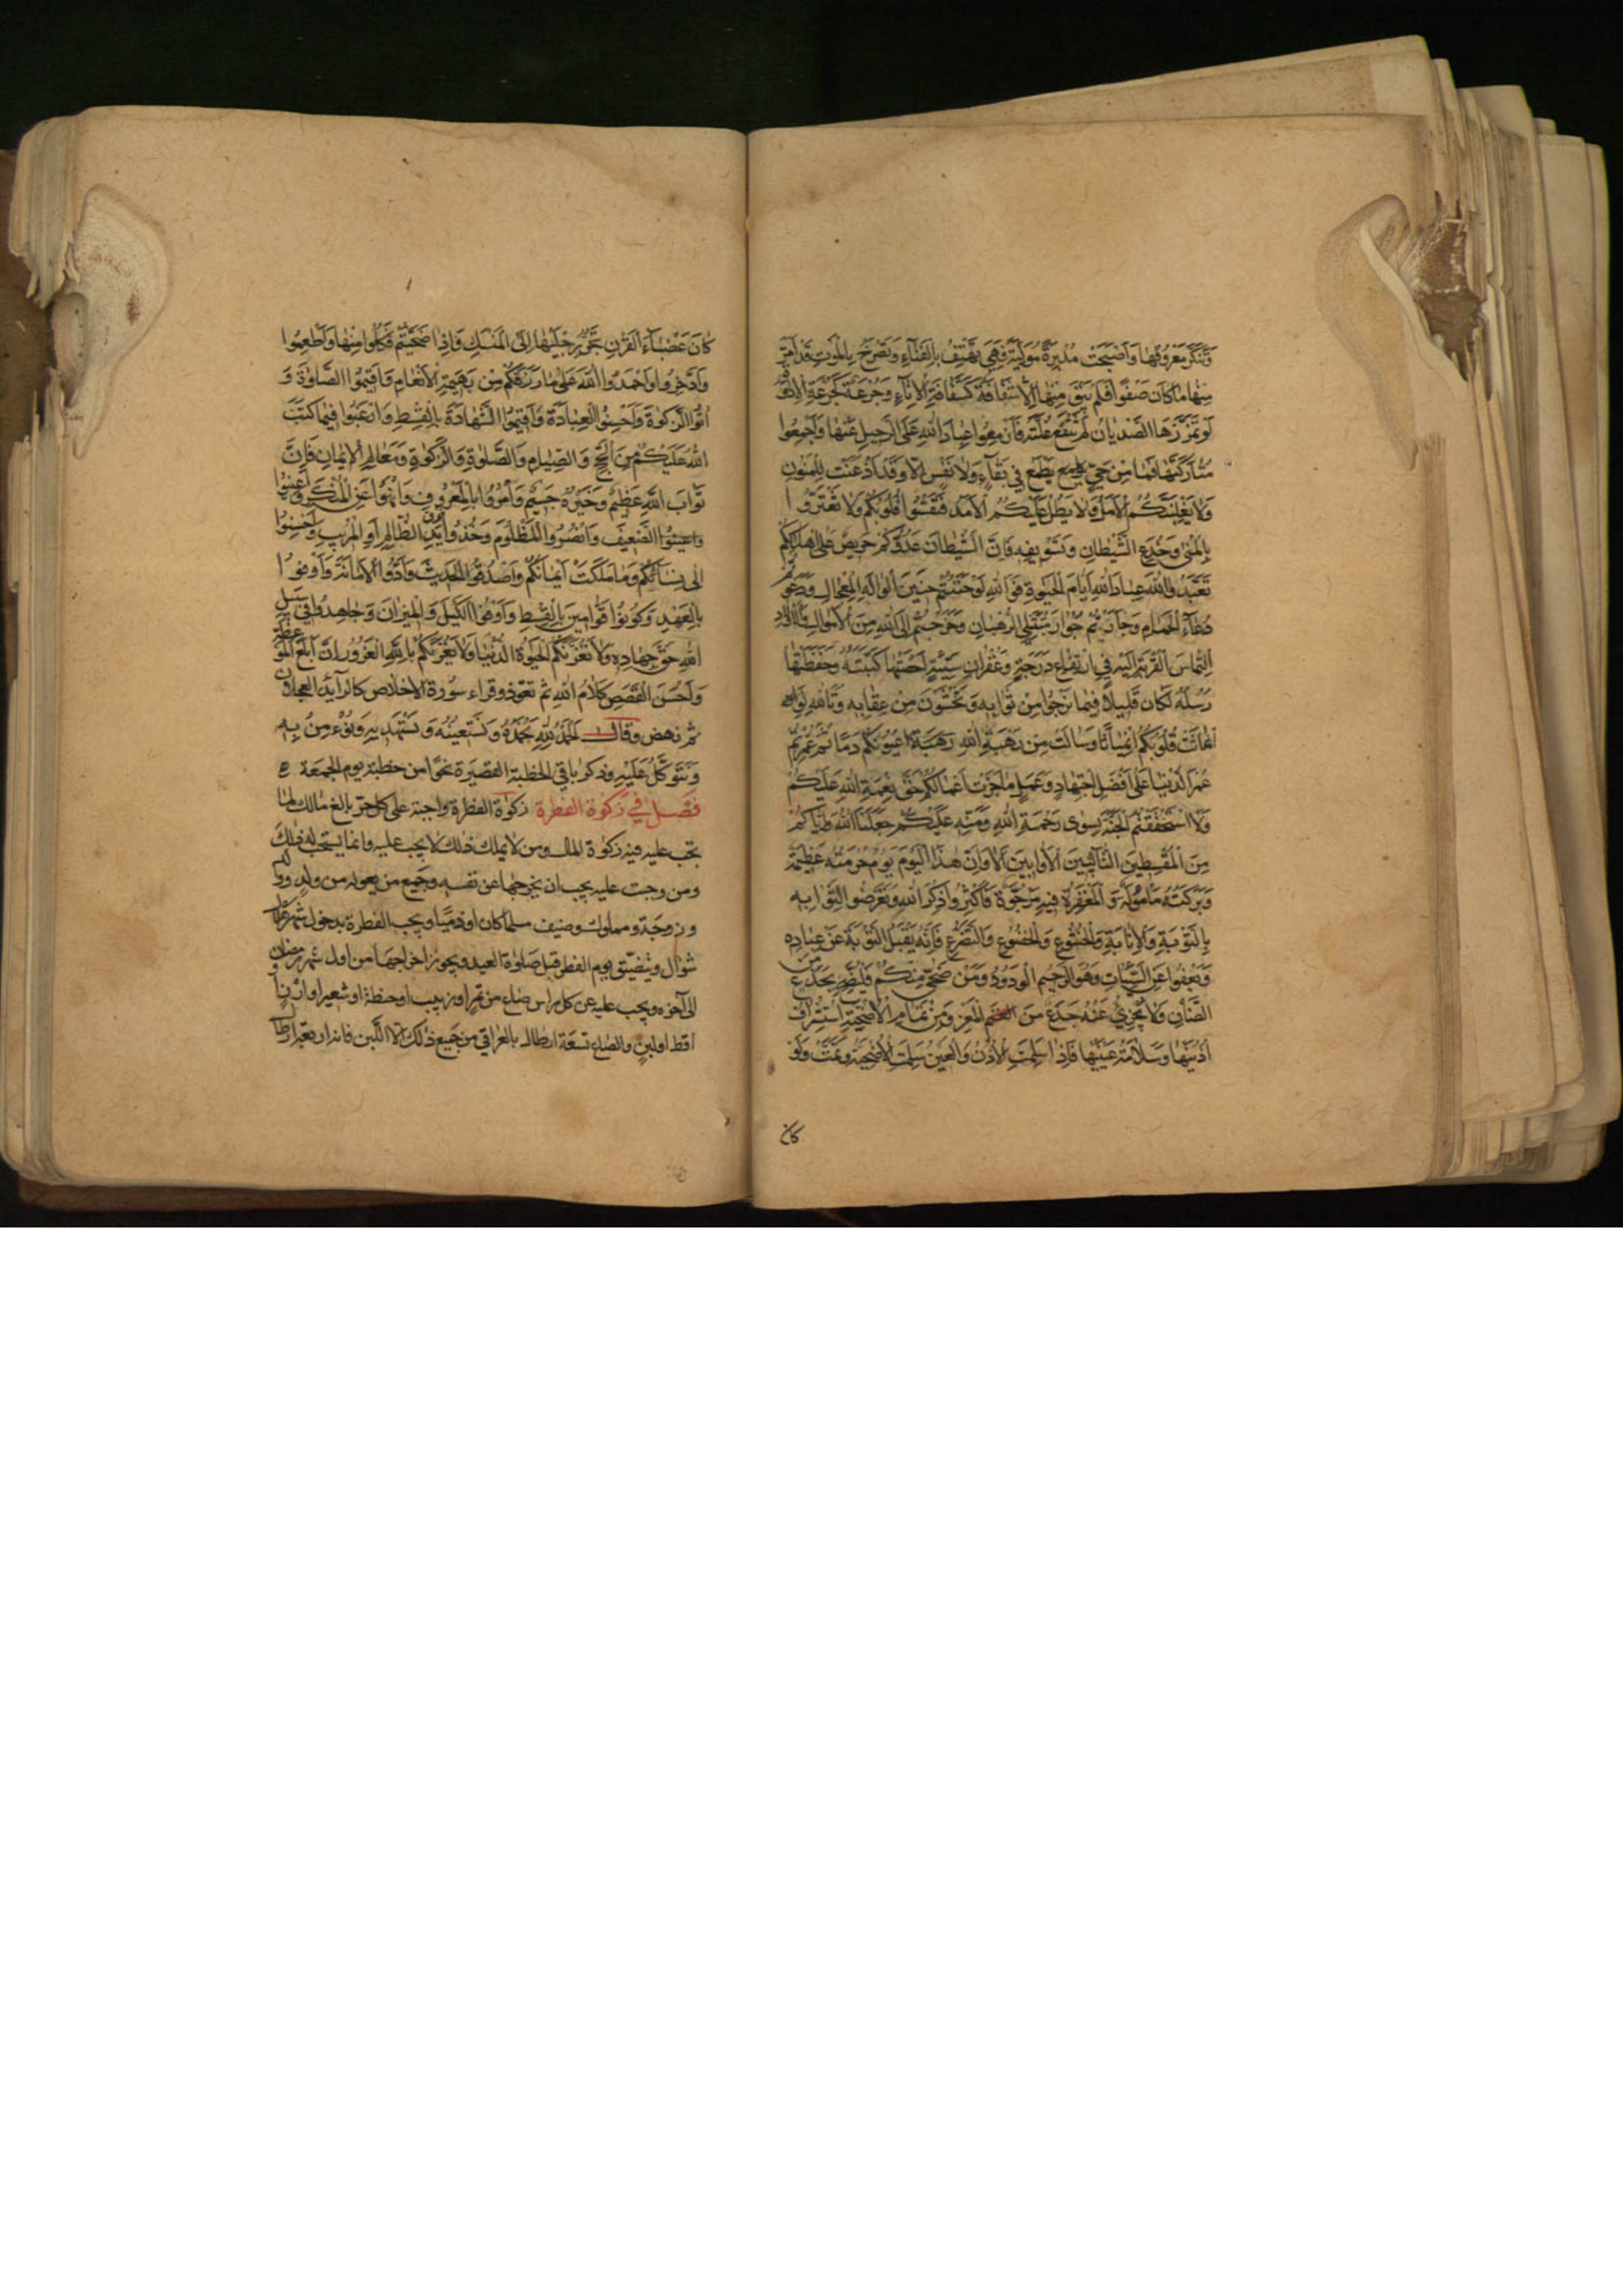 وَتَنَكَّرَ مَعْرُوفُهَا وَأَصْبَحَتْ مُدْبِرَةً مُوَلِّيَةً فَهِيَ تَهْتِفُ بِالْفَنَاءِ وَتَصْرَخُ بِالْمَوْتِ قَدْ أَمَرَّ
مِنْهَا مَا كَانَ صَفْوًا فَلَمْ يَبْقَ مِنْهَا إِلَّا شُفَافَةٌ كَشُفَافَةِ الْإِنَاءِ وَجُرْعَةٌ كَجُرْعَةِ الْإِدَاوَةِ
لَوْ تَمَزَّزَهَا الصَّدْيَانُ لَمْ تَنْقَعْ غُلَّتَهُ فَأَزْمِعُوا عِبَادَ اللهِ عَلَى الرَّحِيلِ عَنْهَا وَأَجْمِعُوا
مُتَارَكَتَهَا فَمَا مِنْ حَيٍّ يَطْمَعُ فِي بَقَاءٍ وَلَا نَفْسٍ إِلَّا وَقَدْ أَذْعَنَتْ لِلْمَنُونِ
وَلَا يَغْلِبَنَّكُمُ الْأَمَلُ وَلَا يَطُلْ عَلَيْكُمُ الْأَمَدُ فَتَقْسُوَا قُلُوبُكُمْ وَلَا تَغْتَرُّوا
بِالْمُنَى وَخُدَعِ الشَّيْطَانِ وَتَسْوِيفِهِ فَإِنَّ الشَّيْطَانَ عَدُوُّكُمْ حَرِيصٌ عَلَى إِهْلَاكِكُمْ
تَعَبَّدُوا للهَ عِبَادَ اللهِ أَيَّامَ الْحَيَوةِ فَوَاللهِ لَوْ حَنَنْتُمْ حَنِينَ الْوَالِهِ الْمِعْجَالِ وَدَعَوْتُمْ
دُعَاءَ الْحَمَامِ وَجَأَرْتُمْ جُؤَارَ مُتَبَتِّلِي الرُّهْبَانِ وَخَرَجْتُمْ إِلَى اللهِ مِنَ الْأَمْوَالِ وَالْأَوْلَادِ
الْتِمَاسَ الْقُرْبَةِ إِلَيْهِ فِي ارْتِفَاعِ دَرَجَةٍ وَغُفْرَانِ سَيِّئَةٍ أَحْصَتْهَا كَتَبَتُهُ وَحَفِظَتْهَا
رُسُلُهُ لَكَانَ قَلِيلًا فِيمَا تَرْجُوا مِنْ ثَوَابِهِ وَتَخْشَوْنَ مِنْ عِقَابِهِ وَتَاللهِ لَوِ
انْمَاثَتْ قُلُوبُكُمُ انْمِيَاثًا وَسَالَتْ مِنْ رَهْبَةِ اللهِ عُيُونُكُمْ دَمًا ثُمَّ عُمِّرْتُمْ
عُمْرَ الدُّنْيَا عَلَى أَفْضَلِ اجْتِهَادٍ وَعَمَلٍ مَا جَزَتْ أَعْمَالُكُمْ حَقَّ نِعْمَةِ اللهِ عَلَيْكُمْ
وَلَا اسْتَحْقَقْتُمُ الْجَنَّةَ بِسِوَى رَحْمَةِ اللهِ وَمَنِّهِ عَلَيْكُمْ جَعَلَنَا اللهُ وَإِيَّاكُمْ
مِنَ الْمُقْسِطِينَ التَّائِبِينَ الْأَوَّابِينَ أَلَا وَإِنَّ هَذَا الْيَوْمَ يَوْمٌ حُرْمَتُهُ عَظِيمَةٌ
وَبَرَكَتُهُ مَأْمُولَةٌ وَالْمَغْفِرَةُ فِيهِ مَرْجُوَّةٌ فَأَكْثِرُوا ذِكْرَ اللهِ وَتَعَرَّضُوا لِثَوَابِهِ
بِالتَّوْبَةِ وَالْإِنَابَةِ وَالْخُشُوعِ وَالْخُضُوعِ وَالتَّضَرُّعِ فَإِنَّهُ يَقْبَلُ التَّوْبَةَ عَنْ عِبَادِهِ
وَيَعْفُوا عَنِ السَّيِّئَاتِ وَهُوَ الرَّحِيمُ الْوَدُودُ وَمَنْ ضَحَّى مِنْكُمْ فَلْيُضَحِّ بِجَذَعٍ مِنَ
الضَّأْنِ وَلَا يُجْزِئُ عَنْهُ جَذَعٌ مِنَ الْمَعْزِ وَمِنْ تَمَامِ الْأُضْحِيَّةِ اسْتِشْرَافُ
أُذُنَيْهَا وَسَلَامَةُ عَيْنَيْهَا فَإِذَا سَلِمَتِ الْأُذُنُ وَالْعَيْنُ سَلِمَتِ الْأُضْحِيَّةُ وَتَمَّتْ وَلَوْ
كان
كَانَ عَضْبَاءَ الْقَرْنِ تَجُرُّ رِجْلَيْهَا إِلَى الْمَنْسَكِ وَإِذَا ضَحَّيْتُمْ فَكُلُوا مِنْهَا وَأَطْعِمُوا
وَادَّخِرُوا وَاحْمَدُوا اللهَ عَلَى مَا رَزَقَكُمْ مِنْ بَهِيمَةِ الْأَنْعَامِ وَأَقِيمُوا الصَّلَوةَ وَ
آتُوا الزَّكَوةَ وَأَحْسِنُوا الْعِبَادَةَ وَأَقِيمُوا الشَّهَادَةَ بِالْقِسْطِ وَارْغَبُوا فِيمَا كَتَبَ
اللهُ عَلَيْكُمْ مِنَ الْحَجِّ وَالصِّيَامِ وَالصَّلَوةِ وَالزَّكَوةِ وَمَعَالِمِ الْإِيمَانِ فَإِنَّ
ثَوَابَ اللهِ عَظِيمٌ وَخَيْرَهُ جَسِيمٌ وَأْمُرُوا بِالْمَعْرُوفِ وَانْهَوْا عَنِ الْمُنْكَرِ وَأَعِينُوا
الضَّعِيفَ وَانْصُرُوا الْمَظْلُومَ وَخُذُوا فَوْقَ يَدِ الظَّالِمِ أَوِ الْمُرِيبِ وَأَحْسِنُوا
إِلَى نِسَائِكُمْ وَمَا مَلَكَتْ أَيْمَانُكُمْ وَاصْدُقُوا الْحَدِيثَ وَأَدُّوا الْأَمَانَةَ وَأَوْفُوا
بِالْعَهْدِ وَكُونُوا قَوَّامِينَ بِالْقِسْطِ وَأَوْفُوا الْكَيْلَ وَالْمِيزَانَ وَجَاهِدُوا فِي سَبِيلِ
اللهِ حَقَّ جِهَادِهِ وَلَا تَغُرَّنَّكُمُ الْحَيَوةُ الدُّنْيَا وَلَا يَغُرَّنَّكُمْ بِاللهِ الْغَرُورُ إِنَّ أَبْلَغَ الْمَوْعِظَةِ
وَأَحْسَنَ الْقَصَصِ كَلَامُ اللهِ ثم تعوّذ وقراء سورة الاخلاص كالرائد العجلان
ثم نهض وقال الْحَمْدُ لِلهِ نَحْمَدُهُ وَنَسْتَعِينُهُ وَنَسْتَهْدِيهِ وَنُؤْمِنُ بِهِ
وَنَتَوَكَّلُ عَلَيْهِ وذكر باقي الخطبة القصيرة نحوًا من خطبة يوم الجمعة
فصل في زكوة الفطرة زكوة الفطرة واجبة على كل حرّ بالغ مالك لما
تجب عليه فيه زكوة المال ومن لا يملك ذلك لا يجب عليه وانما يستحب له ذلك
ومن وجبت عليه يجب ان يخرجها عن نفسه وجميع من يعوله من ولد ووالد
وزوجة ومملوك وضيف مسلما كان او ذميّا ويجب الفطرة بدخول شهر
شوال ويتضيّق يوم الفطر قبل صلوة العيد ويجوز اخراجها من اول شهر رمضان
الى آخره ويجب عليه عن كل راس صاع من تمر او زبيب او حنطة او شعير او ارز او
اقط او لبن والصاع تسعة ارطال بالعراقي من جميع ذلك الا اللبن فانه اربعة ارطال